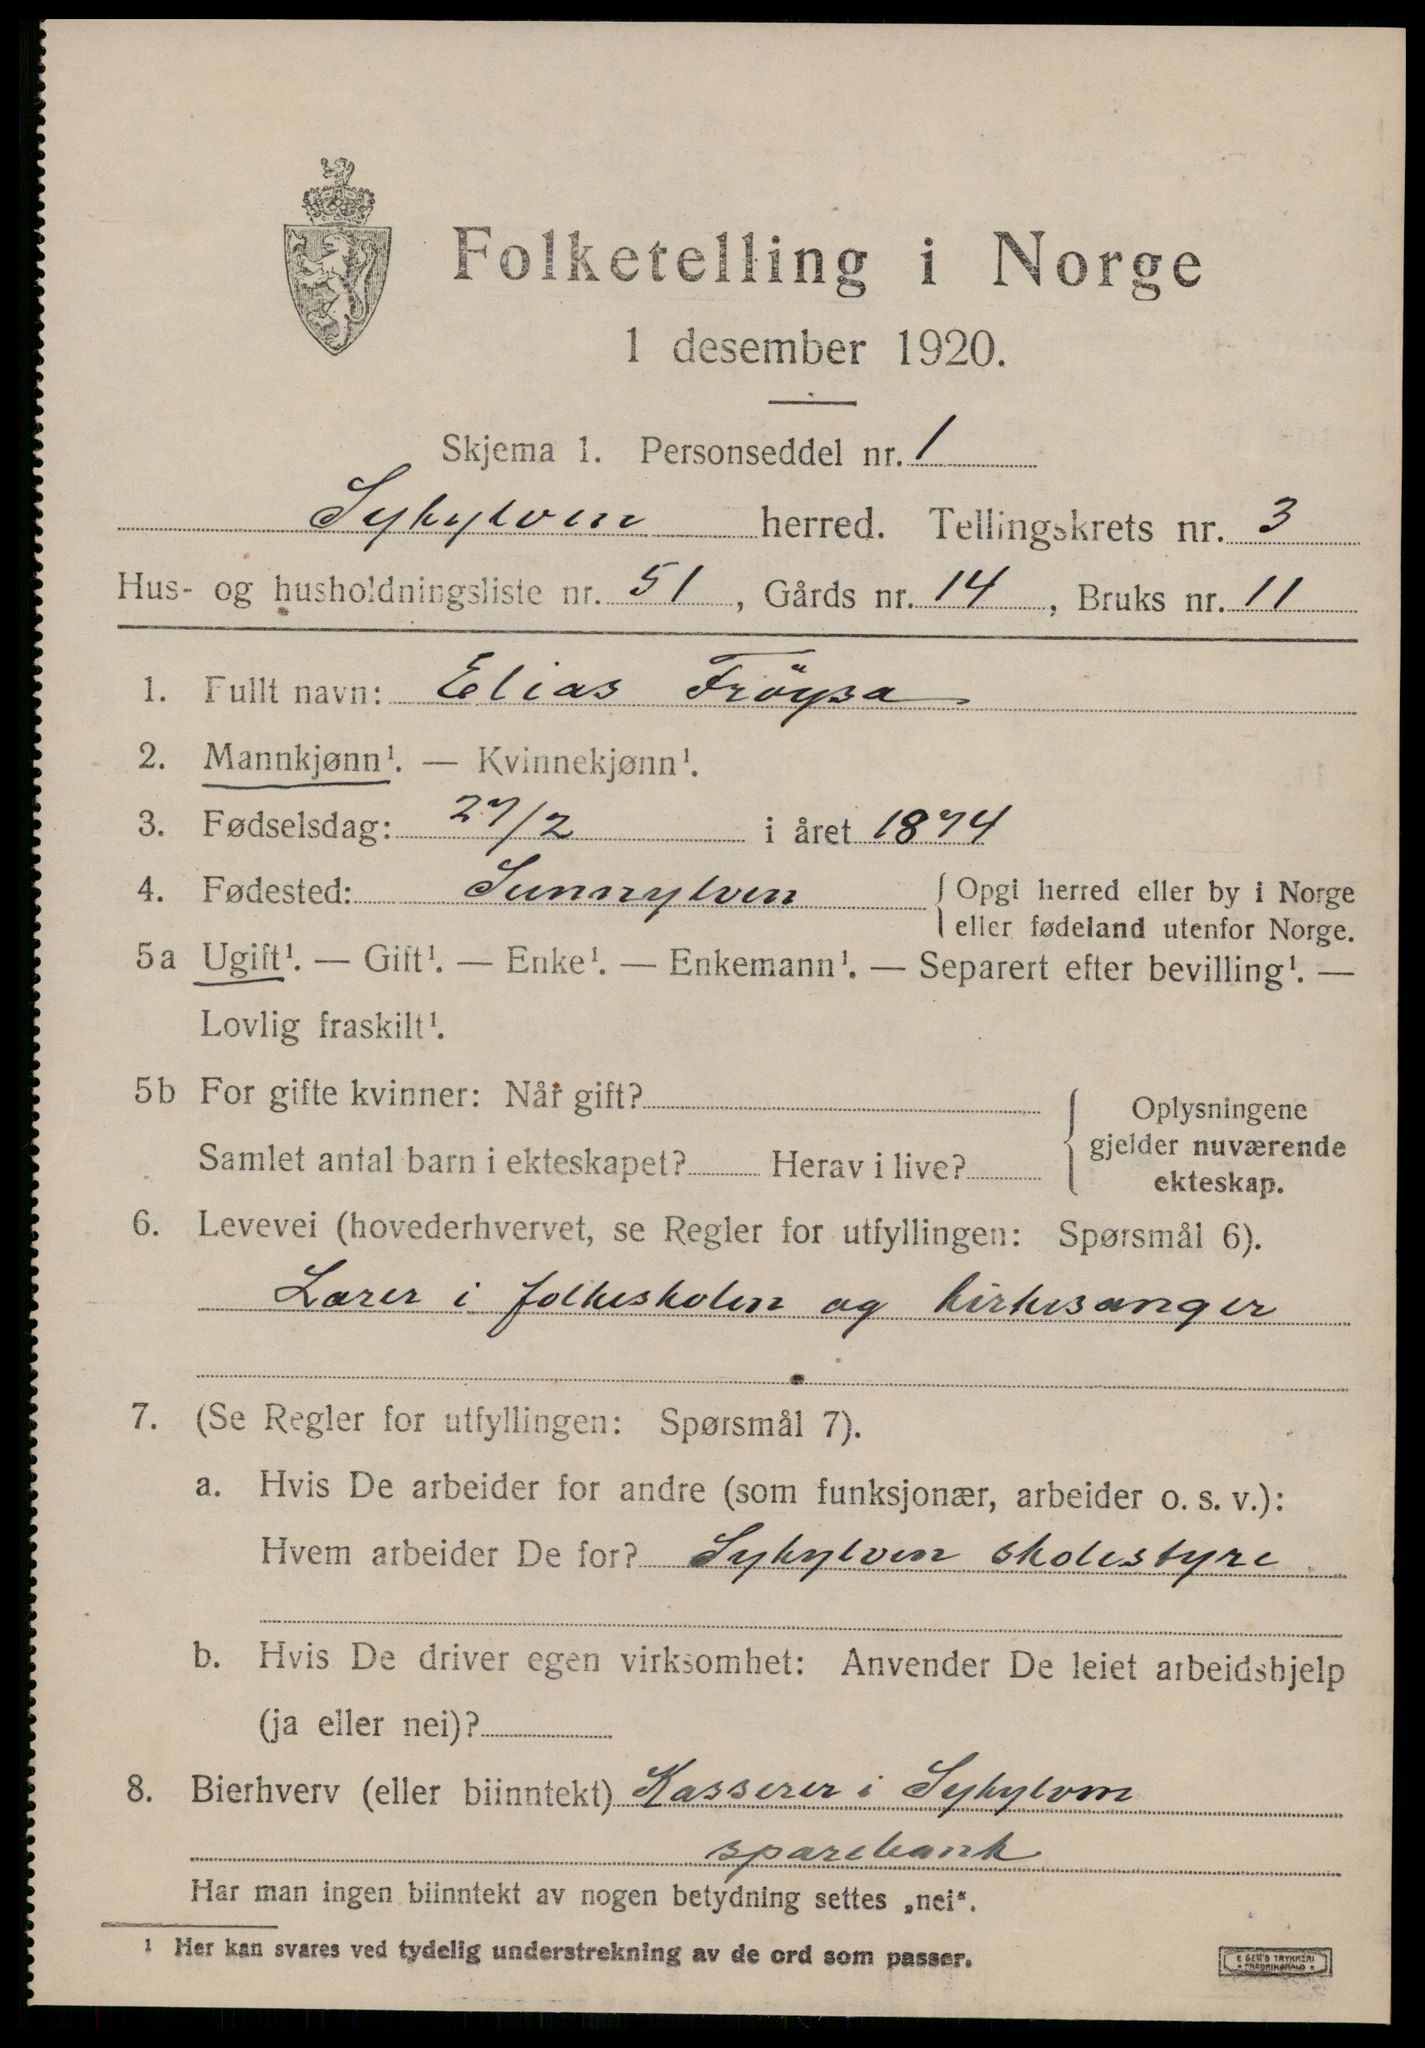 Folketelling i Norge
1 desember 1920.
Skjema 1. Personseddel nr. 1
Sykylven herred. Tellingskrets nr. 3
Hus- og husholdningsliste nr. 51, Gårds nr. 14, Bruks nr. 11
1. Fullt navn: Elias Fröysa
2. Mannkjønn¹. — Kvinnekjønn¹.
3. Fødselsdag: 27/2 i året 1874
4. Fødested: Sunnylven { Opgi herred eller by i Norge
eller fødeland utenfor Norge.
5a Ugift¹. — Gift¹. — Enke¹. — Enkemann¹. — Separert efter bevilling¹. —
Lovlig fraskilt¹.
5b For gifte kvinner: Når gift?
Samlet antal barn i ekteskapet? Herav i live?
Oplysningene
gjelder nuværende
ekteskap.
6. Levevei (hovederhvervet, se Regler for utfyllingen: Spørsmål 6).
Lærer i folkeskolen og kirkesanger
7. (Se Regler for utfyllingen: Spørsmål 7).
a. Hvis De arbeider for andre (som funksjonær, arbeider o. s. v.):
Hvem arbeider De for? Sykylven skolestyre
b. Hvis De driver egen virksomhet: Anvender De leiet arbeidshjelp
(ja eller nei)?
8. Bierhverv (eller biinntekt) Kasserer i Sykylven
sparebank
Har man ingen biinntekt av nogen betydning settes „nei“.
¹ Her kan svares ved tydelig understrekning av de ord som passer.
TRYKKERI
FREDRIKSHALD